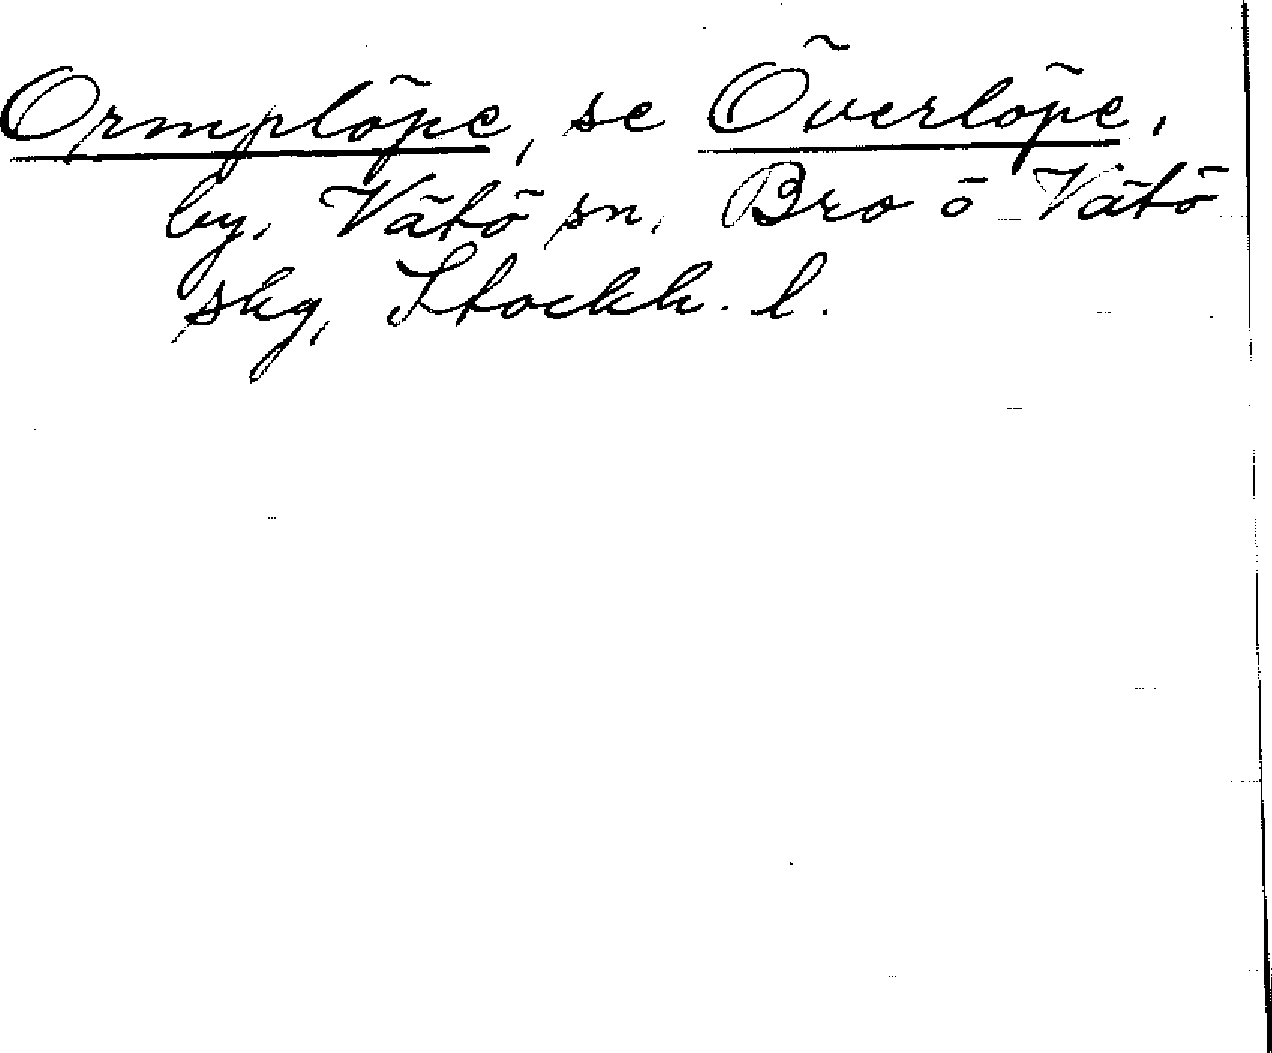 Ormplöpe, se Överlöpe,
by, Vätö sn, Bro o Vätö
skg, Stockh. l.